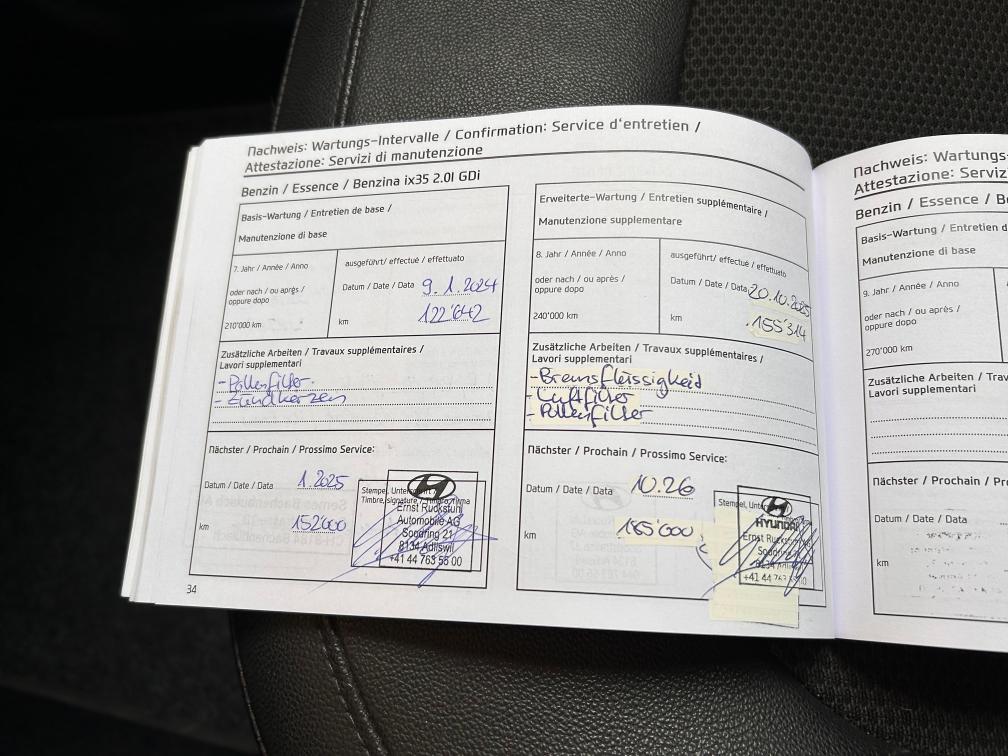 Nachweis: Wartungs-Intervalle / Confirmation: Service d'entretien /
Attestazione: Servizi di manutenzione
Benzin / Essence / Benzina ix35 2.0l GDi
Basis-Wartung / Entretien de base /
Manutenzione di base
7. Jahr / Année / Anno
oder nach / ou après /
oppure dopo
210'000 km
ausgeführt/ effectué / effettuato
Datum / Date / Data 9.1.2024
km 122'642
Zusätzliche Arbeiten / Travaux supplémentaires /
Lavori supplementari
- Pollenfilter
- Zündkerzen
Nächster / Prochain / Prossimo Service:
Datum / Date / Data 1.2025
km 152'000
Timbre, signature /
Ernst Ruckstuhl
Automobile AG
Soodring 21
8134 Adliswil
+41 44 763 55 00
34
Erweiterte-Wartung / Entretien supplémentaire /
Manutenzione supplementare
8. Jahr / Année / Anno
oder nach / ou après /
oppure dopo
240'000 km
ausgeführt/ effectué / effettuato
Datum / Date / Data 20.10.2025
km 155'314
Zusätzliche Arbeiten / Travaux supplémentaires /
Lavori supplementari
- Bremsflüssigkeit
- Luftfilter
- Pollenfilter
Nächster / Prochain / Prossimo Service:
Datum / Date / Data 10.26
km 185'000
Stempel,
HYUNDAI
Ernst
8134 Adliswil
+41 44 763 55 00
Nachweis: Wartungs-
Attestazione: Serviz
Benzin / Essence / Be
Basis-Wartung / Entretien d
Manutenzione di base
9. Jahr / Année / Anno
oder nach / ou après /
oppure dopo
270'000 km
Zusätzliche Arbeiten / Trava
Lavori supplementari
Nächster / Prochain / Pro
Datum / Date / Data
km